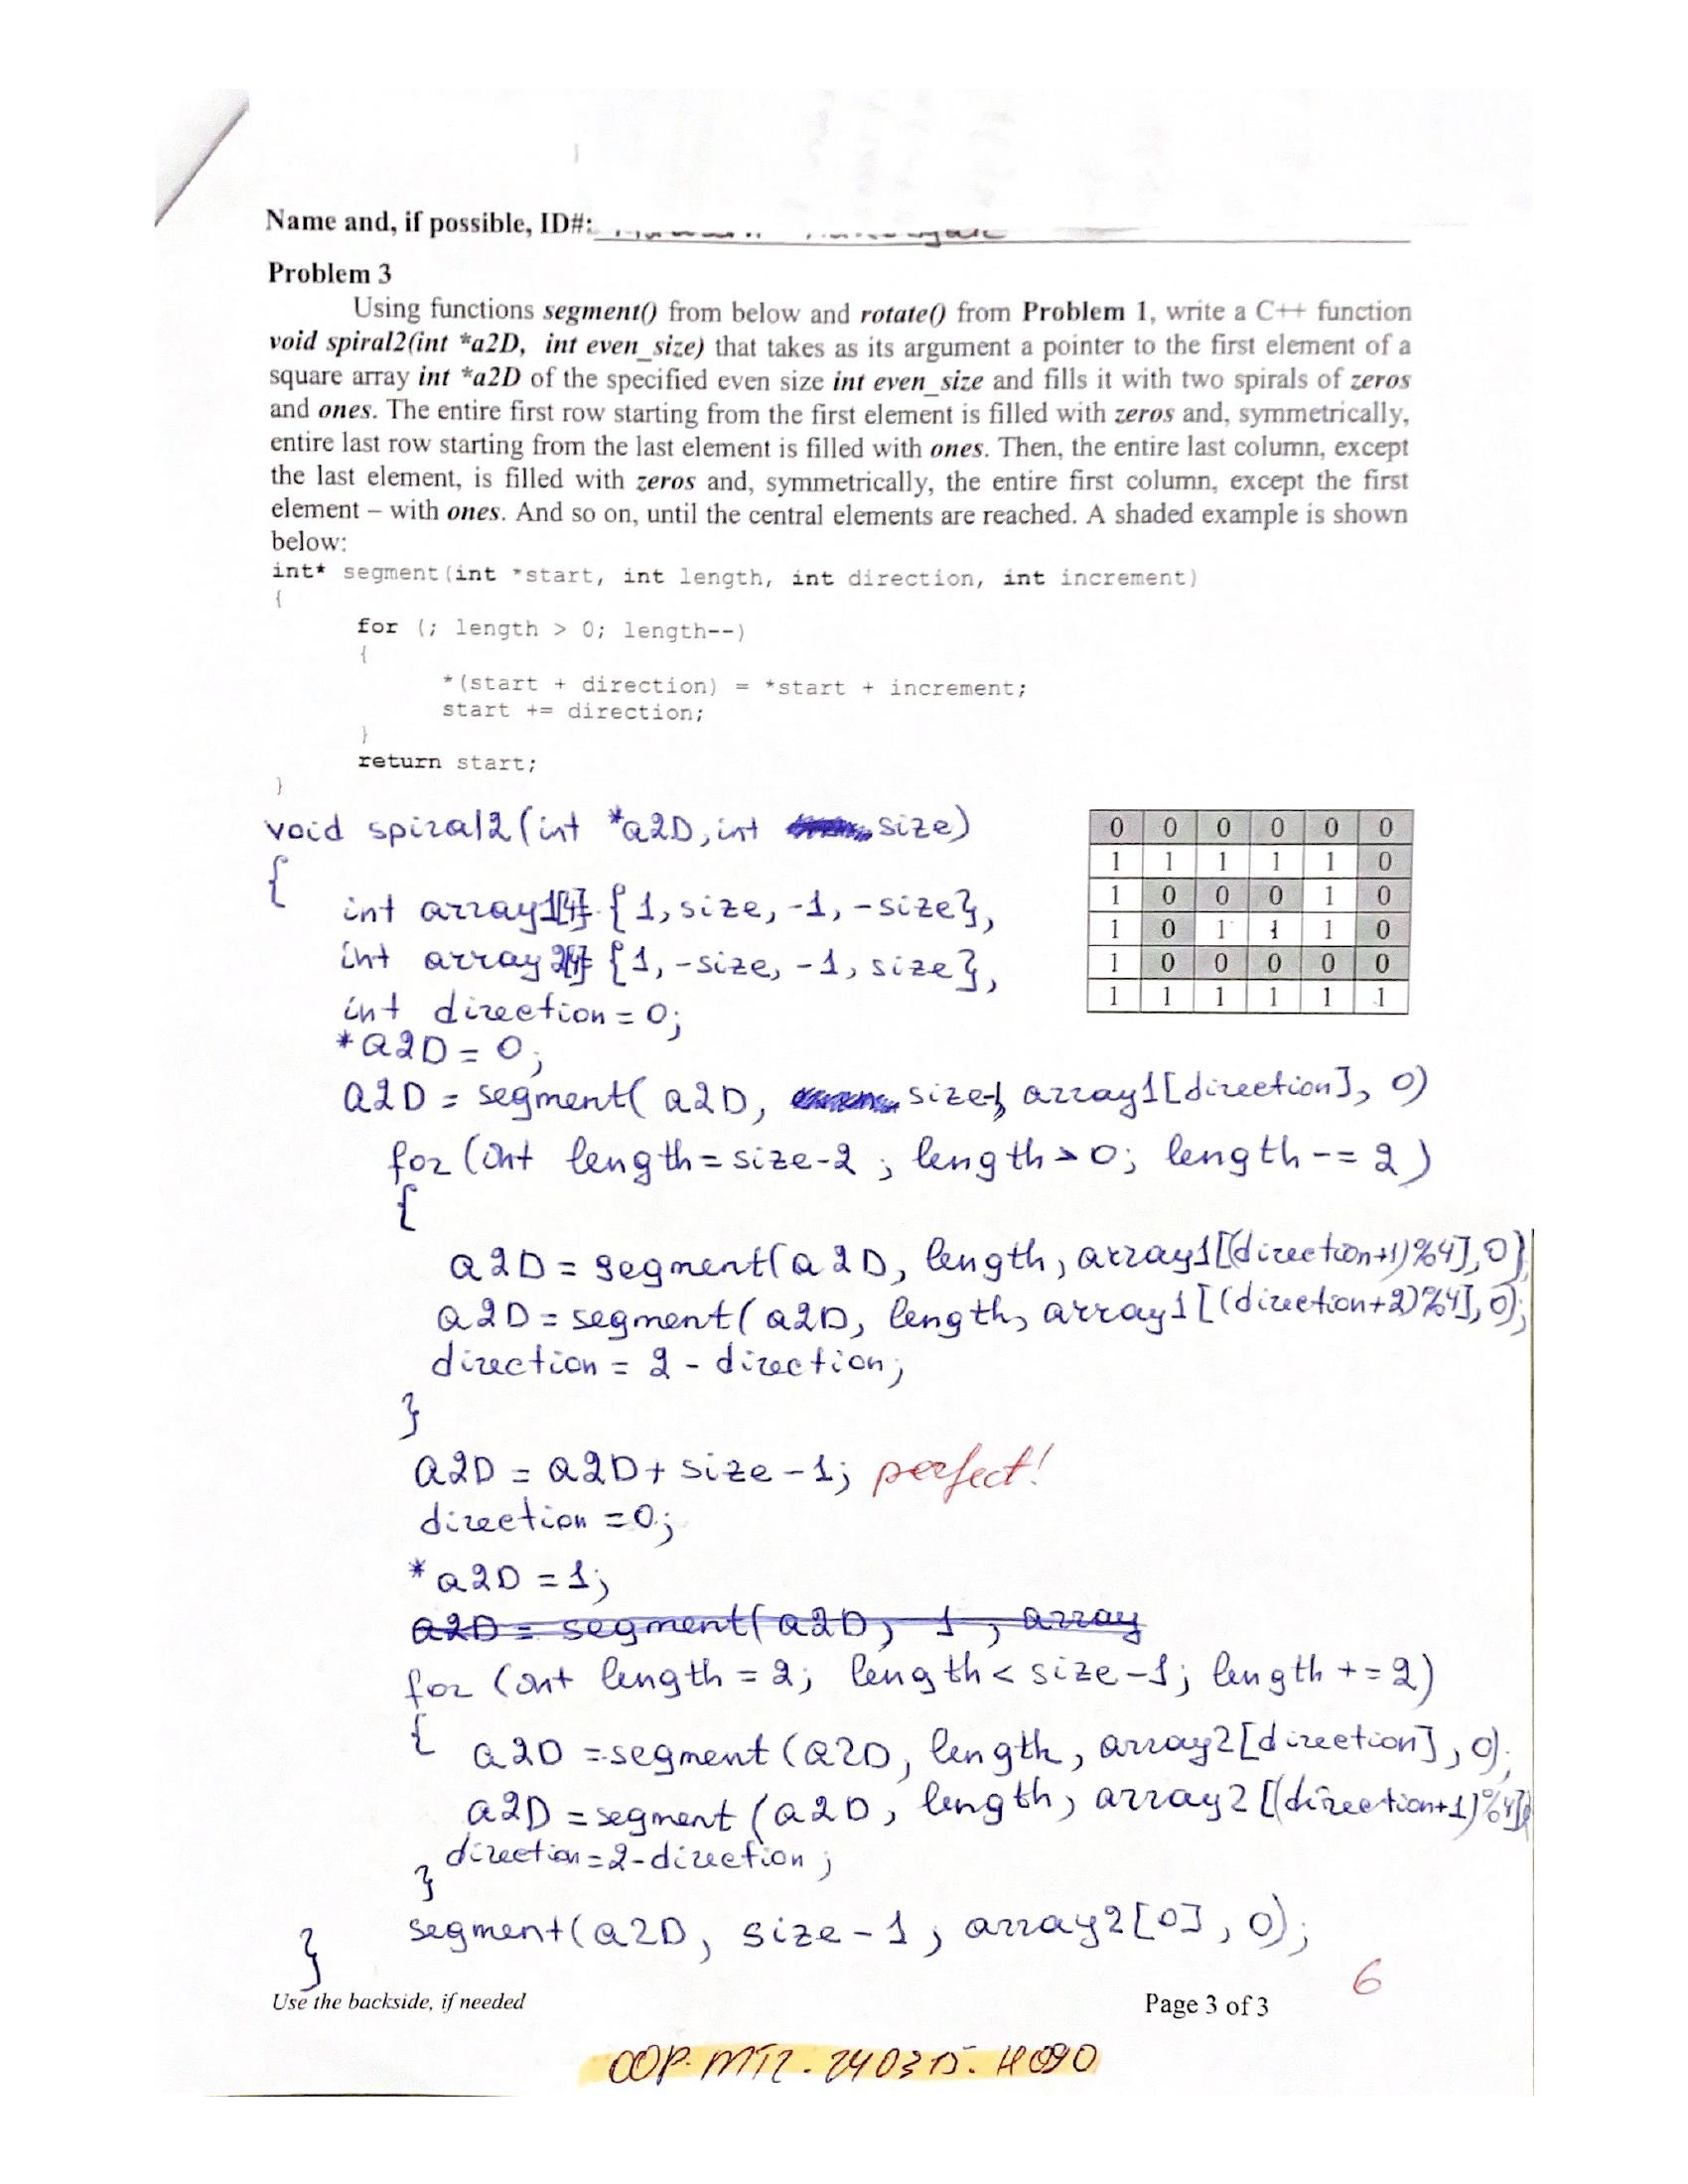 Name and, if possible, ID#:
Problem 3
Using functions segment() from below and rotate() from Problem 1, write a C++ function
void spiral2(int *a2D, int even_size) that takes as its argument a pointer to the first element of a
square array int *a2D of the specified even size int even_size and fills it with two spirals of zeros
and ones. The entire first row starting from the first element is filled with zeros and, symmetrically,
entire last row starting from the last element is filled with ones. Then, the entire last column, except
the last element, is filled with zeros and, symmetrically, the entire first column, except the first
element – with ones. And so on, until the central elements are reached. A shaded example is shown
below:
int* segment(int *start, int length, int direction, int increment)
{
for (; length > 0; length--)
{
*(start + direction) = *start + increment;
start += direction;
}
return start;
}
void spiral2(int *a2D, int size)
{
int array1[4]={1, size, -1, -size},
int array2[4]={1, -size, -1, size},
int direction = 0;
*a2D = 0;
a2D = segment(a2D, size-1, array1[direction], 0)
for (int length = size-2; length > 0; length -= 2)
{
a2D = segment(a2D, length, array1[(direction+1)%4], 0);
a2D = segment(a2D, length, array1[(direction+2)%4], 0);
direction = 2 - direction;
}
a2D = a2D + size - 1; perfect!
direction = 0;
*a2D = 1;
a2D = segment(a2D, 1, array
for (int length = 2; length < size-1; length += 2)
{ a2D = segment(a2D, length, array2[direction], 0);
a2D = segment(a2D, length, array2[(direction+1)%4],
direction = 2 - direction;
}
segment(a2D, size-1, array2[0], 0);
}
0 0 0 0 0 0
1 1 1 1 1 0
1 0 0 0 1 0
1 0 1 1 1 0
1 0 0 0 0 0
1 1 1 1 1 1
6
Use the backside, if needed
Page 3 of 3